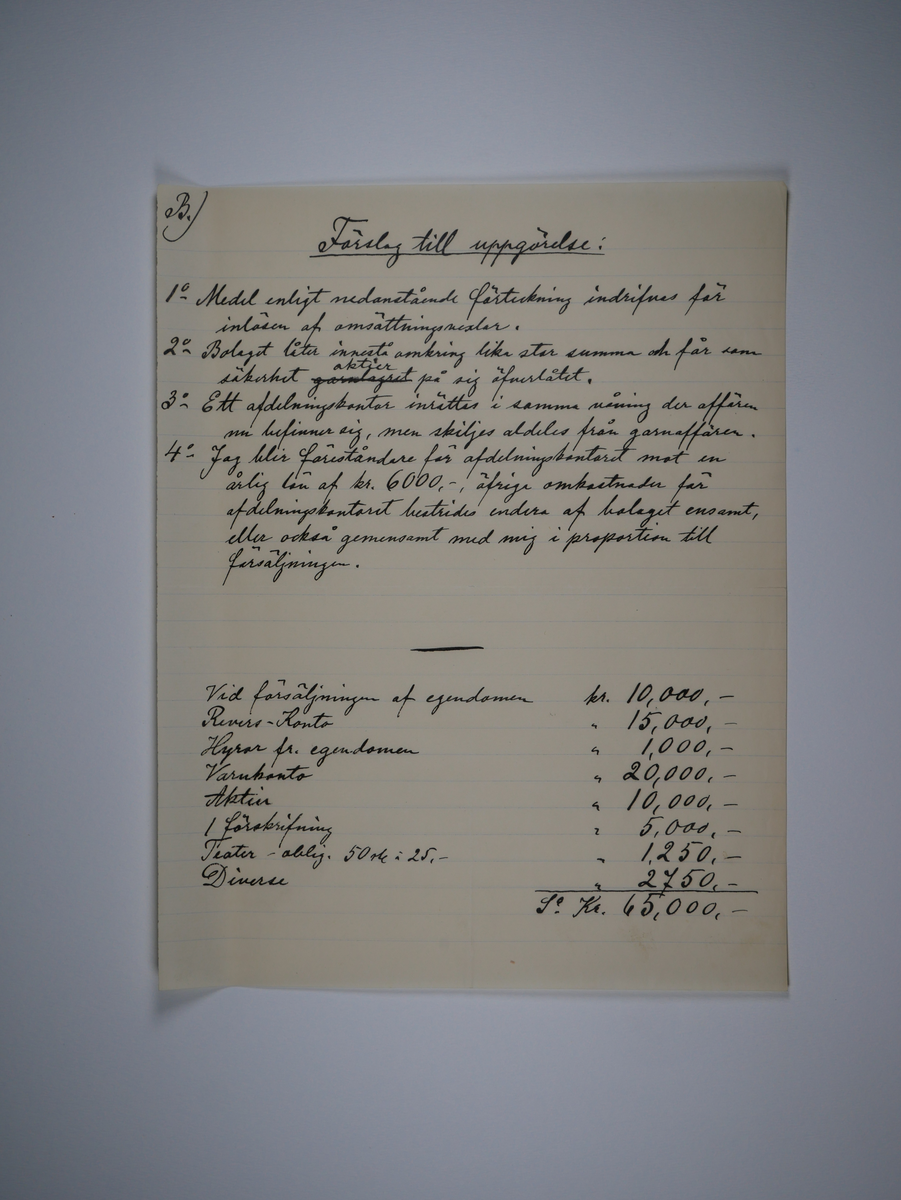 B.)
Förslag till uppgörelse:
1º Medel enligt nedanstående förteckning indrifvas för
inlösen af omsättningsvexlar.
2º Bolaget låter innestå omkring lika stor summa och får som
aktier
säkerhet garnlagret på sig öfverlåtet.
3º Ett afdelningskontor inrättas i samma våning der affären
nu befinner sig, men skiljes aldeles från garnaffären.
4º Jag blir föreståndare för afdelningskontoret mot en
årlig lön af kr. 6000,-, öfriga omkostnader för
afdelningskontoret bestrides endera af bolaget ensamt,
eller också gemensamt med mig i proportion till
försäljningen.
Vid försäljningen af egendomen kr. 10,000,-
Revers-Konto " 15,000,-
Hyror fr. egendomen " 1,000,-
Varukonto " 20,000,-
Aktier " 10,000,-
1 förskrifning " 5,000,-
Teater-oblig. 50 stk à 25,- " 1,250,-
Diverse " 2750,-
Sª Kr. 65,000,-